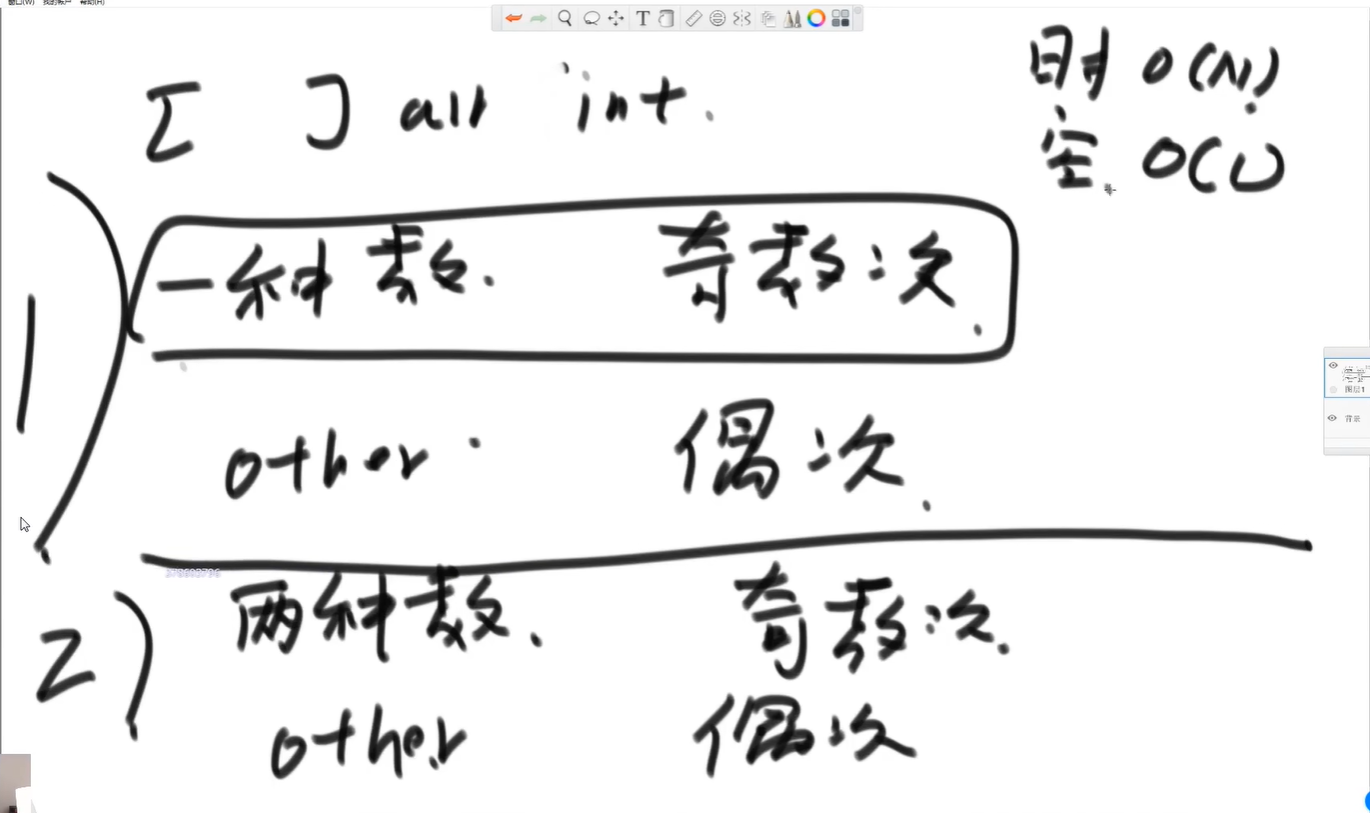 窗口(W) 我的帐户 帮助(H)
[ ] all int.
时 O(N)
空 O(1)
1)
一种数. 奇数次.
other. 偶次.
2)
两种数. 奇数次.
other 偶次
图层1
背景